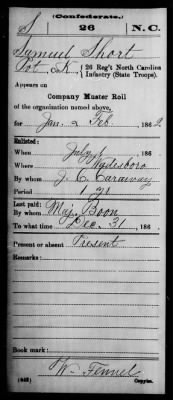 (Confederate.)
S 26 N.C.
Samuel Short
Pvt, Co. K, 26 Reg't North Carolina
Infantry (State Troops).
Appears on
Company Muster Roll
of the organization named above,
for Jan. & Feb, 1862.
Enlisted:
When July 1, 186
Where Wadesboro
By whom J. C. Caraway
Period 1 yr
Last paid:
By whom Maj. Boon
To what time Dec. 31, 186
Present or absent Present
Remarks:
Book mark:
W. Fennel
(642) Copyist.